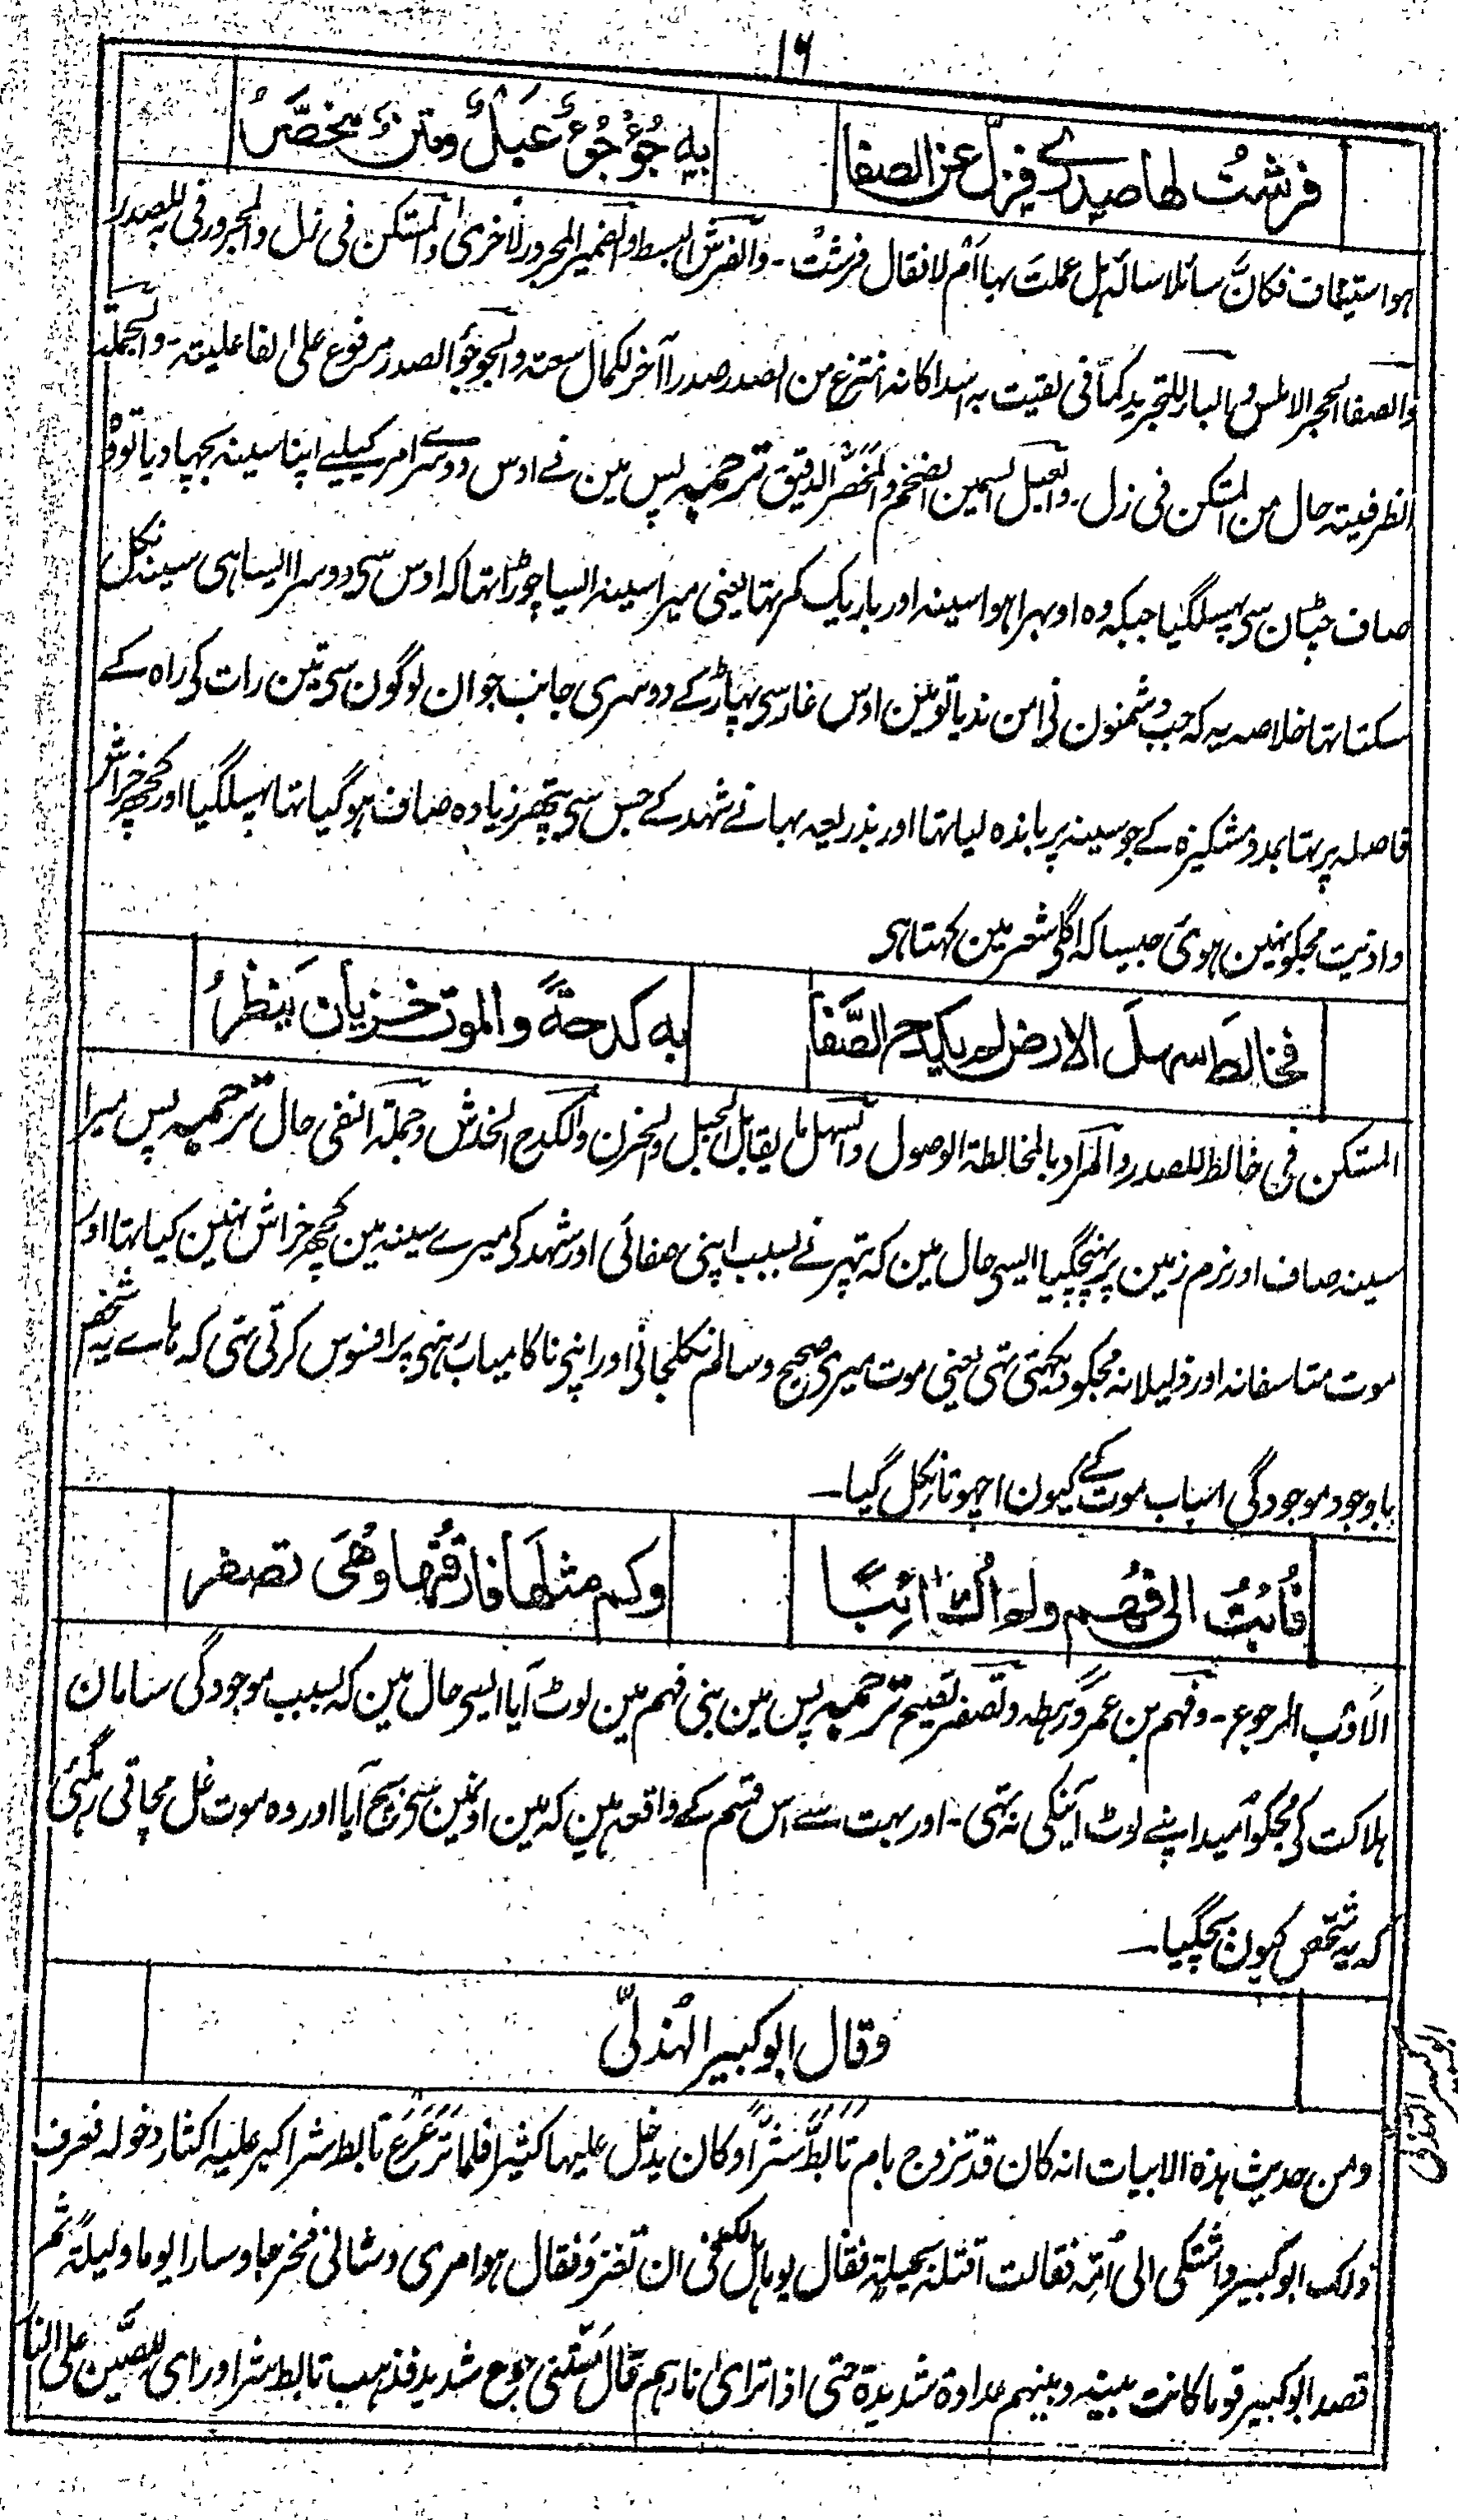 ١٦
فرشتُ لها صدری فزلّ عن الصفا به جُؤجُؤٌ عَبلٌ ومتنٌ مخصَّرُ
ہو استیناف فکانَّ سائلا سالہ ہل عملتَ بہا اَم لا فقال فرشتُ۔ والفرش البسط والضمیر المجرور لأخریٰ والمستکن فی زل والمجرور فی بہ للصدر
والصفا الحجر الاملس والباء للتجرید کما فی لقیت بہ اسدا کانہ انتزع من الصدر صدرا آخر لکمال سعتہ والجوجؤ الصدر مرفوع علی الفاعلیتہ۔ والجملة
الظرفیتہ حال من المستکن فی زل۔ والعبل السمین الضخم والمخصَّر الدقیق ترجمہ پس مین نے اوس دوسرے امر کیلیے اپنا سینہ بچہا دیا تو وہ
صاف چٹان سی پہسلگیا جبکہ وہ اوبہرا ہوا سینہ اور باریک کمر تہا یعنی میرا سینہ ایسا چوڑا تہا کہ اوس سی دوسرا ایسا ہی سینہ نکل
سکتا تہا خلاصہ یہ کہ جب دشمنون نی امن ندیا تو مین اوس غار سی پہاڑ کے دوسری جانب جو ان لوگون سی تین رات کی راہ کے
فاصلہ پر تہا بمدد مشکیزہ کے جو سینہ پر باندہ لیا تہا اور بذریعہ بہانے شہد کے جس سی پتھر زیادہ صاف ہو گیا تہا پہسلگیا اور کچھ خراش
و اذیت مجکو نہین ہوئی جیسا کہ اگلی شعر مین کہتا ہی
فخالطَ سہلَ الارض لم یکدح الصَّفَا به کدحةً والموت خزیان یَنظرُ
المستکن فی خالط للصدر والمراد بالمخالطة الوصول والسہل ما یقابل الجبل والحزن والکدح الخدش وجملة النفی حال ترجمہ پس میرا
سینہ صاف اور نرم زمین پر پہنچگیا ایسی حال مین کہ پتہر نے بسبب اپنی صفائی اور شہد کی میرے سینہ مین کچھ خراش نہین کیا تہا اور
موت متاسفانہ اور ذلیلانہ مجکو دیکہتی تہی یعنی موت میری صحیح وسالم نکلجانی اور اپنی ناکامیاب رہنی پر افسوس کرتی تہی کہ ہاے یہ شخص
باوجود موجودگی اسباب موت کے کیون اچہوتا نکل گیا۔
فأُبتُ الی فہمٍ ولم أکُ آئبًا وکم مثلهَا فارقتُها وَهْیَ تصفر
الاَوب الرجوع۔ وفہم بن عمرو رہطہ وتصفر تصیح ترجمہ پس مین بنی فہم مین لوٹ آیا ایسی حال مین کہ بسبب موجودگی سامان
ہلاکت کی مجکو امید اپنے لوٹ آنیکی نہ تہی۔ اور بہت سے اس قسم کے واقعہ ہین کہ مین اونمین سی بچ آیا اور وہ موت غل مچاتی رہگئی
کہ یہ شخص کیون بچگیا۔
وقال ابو کبیر الہذلیّ
ابو کبیر الہذلی
ومن حدیث ہذہ الابیات انہ کان قد تزوج بام تابَّطَ شرًّا وکان یدخل علیہا کثیرا فلما تَرَعرَعَ تابط شرا کبر علیہ اکثار دخولہ فعرف
ذلک ابو کبیر واشتکی الی اُمّہ فقالت اقتلہ بحیلة فقال یوما ہل لک فی ان تغزو فقال ہو امری وشانی فخرجا وسارا یوما ولیلة ثم
قصد ابو کبیر قوما کانت بینہ وبینہم عداوة شدیدة حتی اذا ترایٰ نارہم قال مسّنی جوع شدید فذہب تابط شرا ورای اللصَّین علی النار